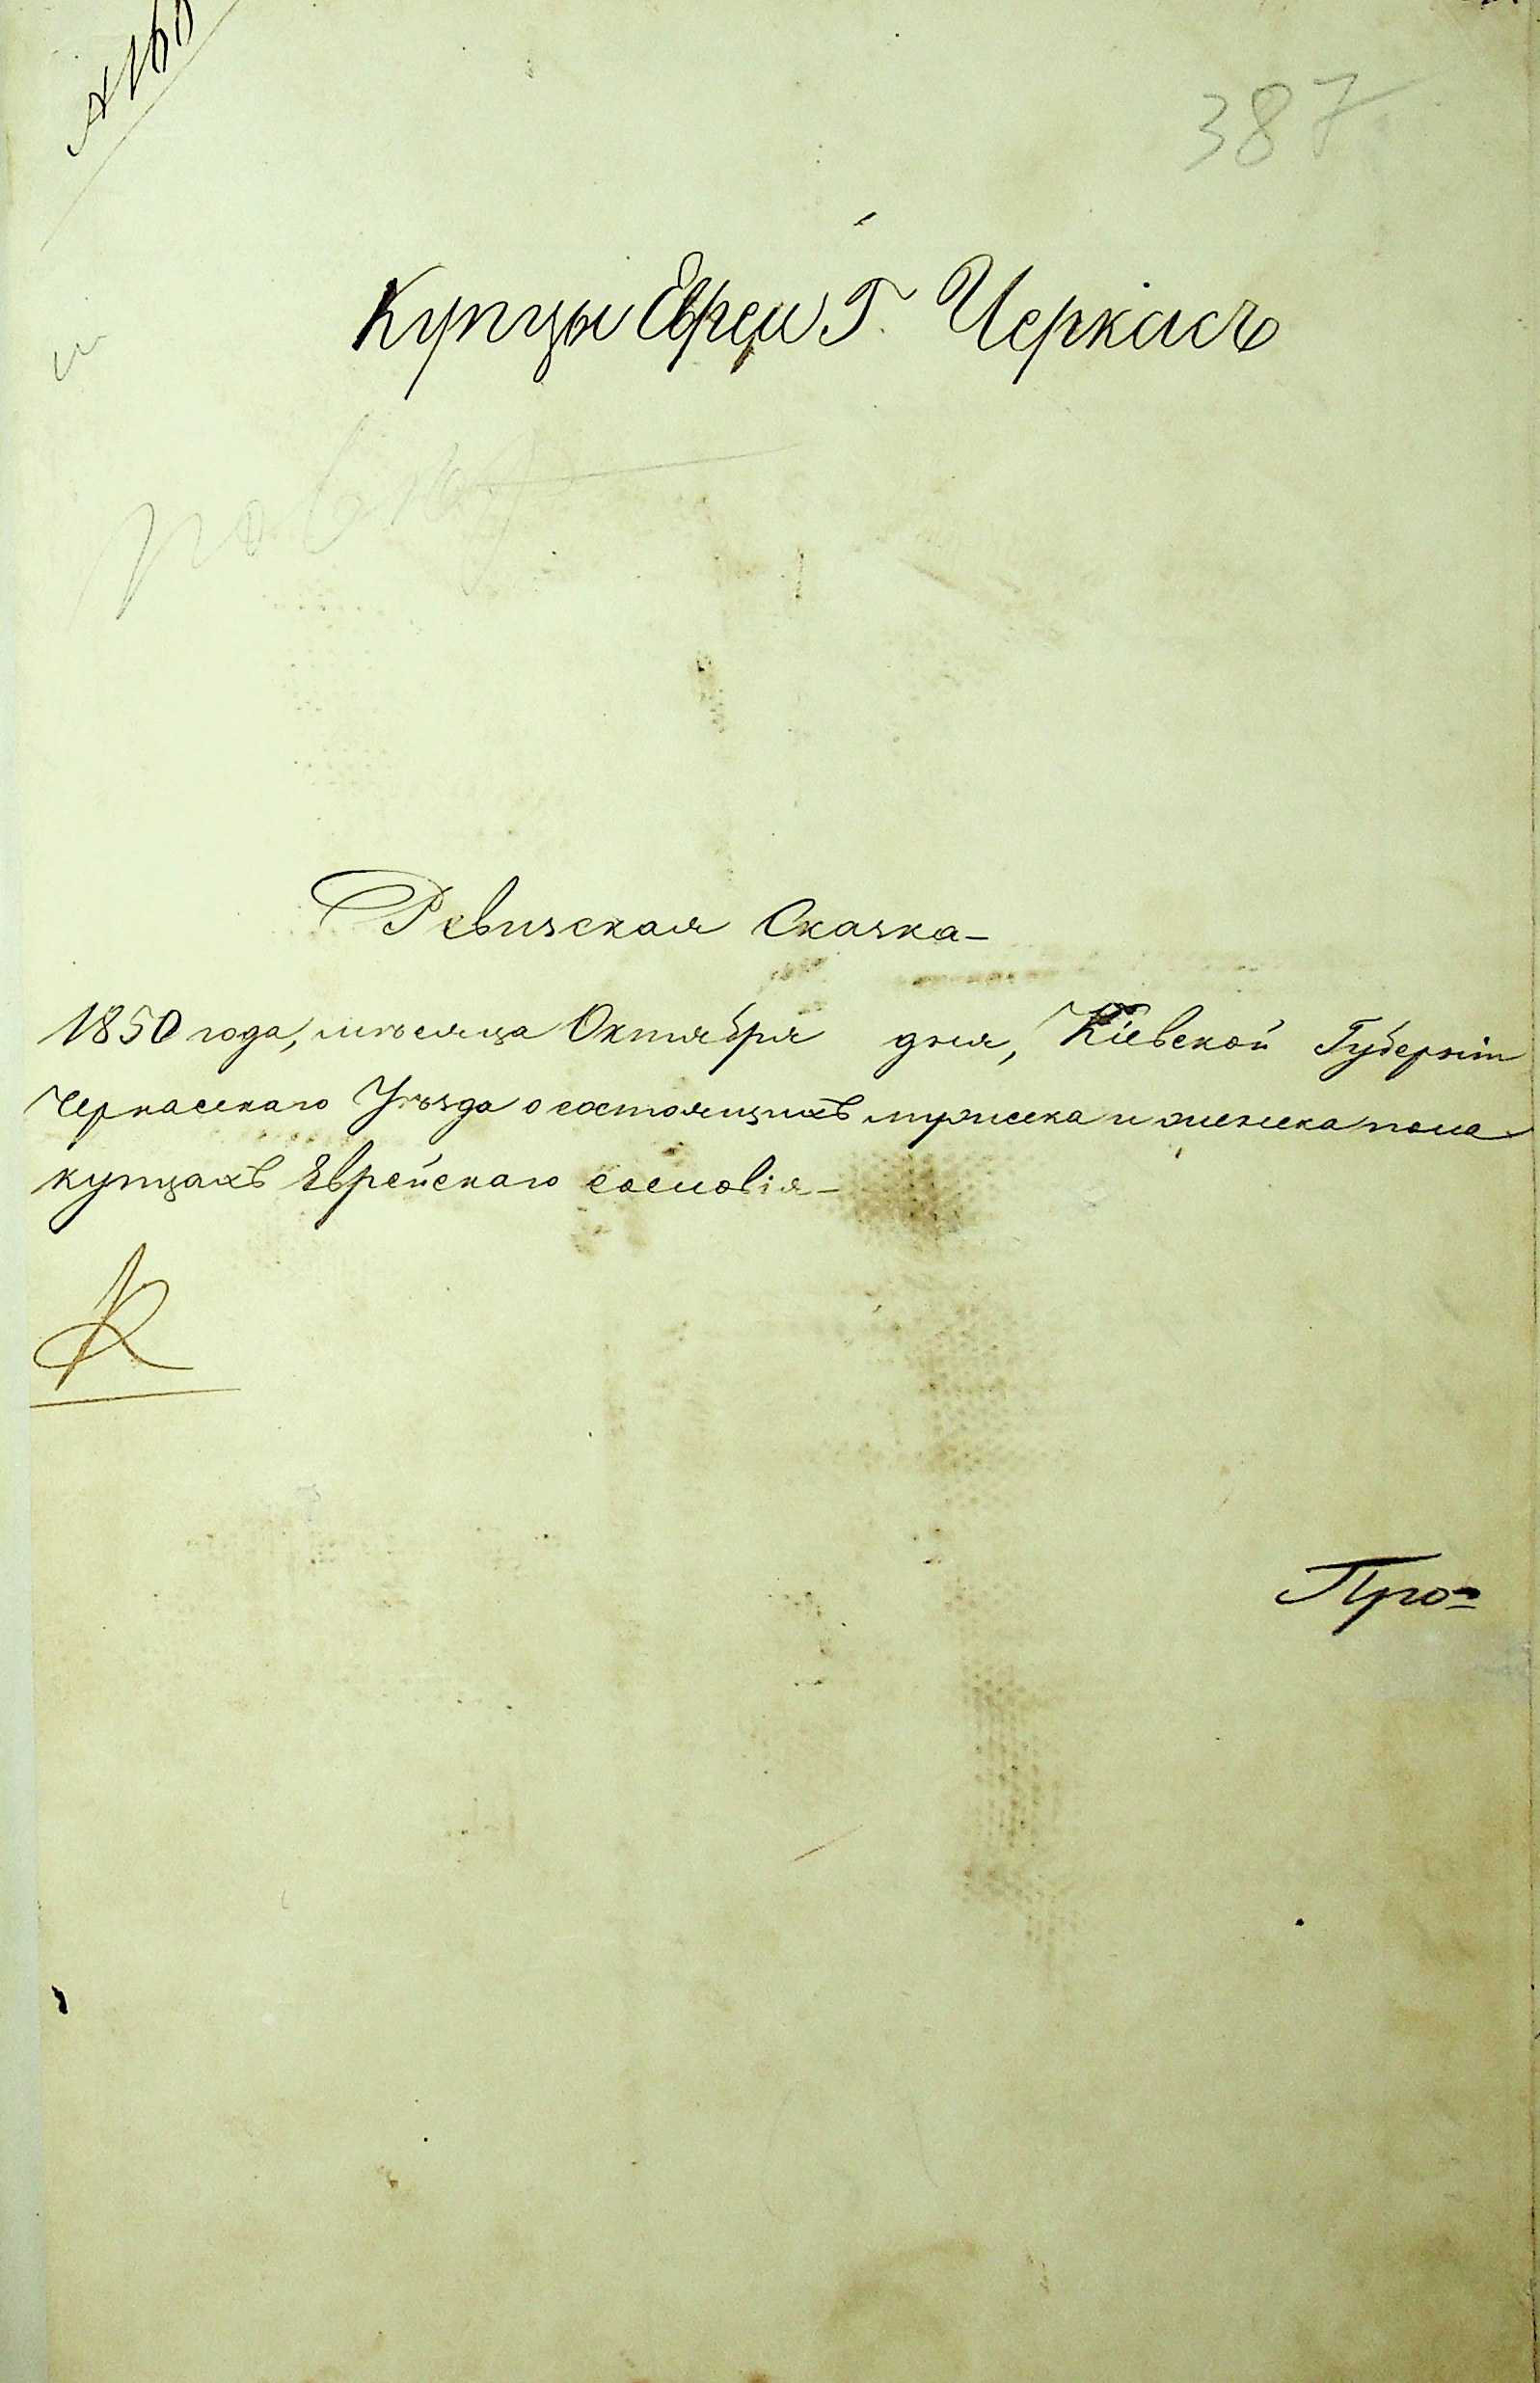 387
Купцы Евреи Г. Черкасъ
Ревизская Сказка
1850 года, мѣсяца Октября дня, Кіевской Губерніи
Черкасскаго Уѣзда о состоящихъ мужеска и женска пола
купцахъ Еврейскаго сословія
К
Про=